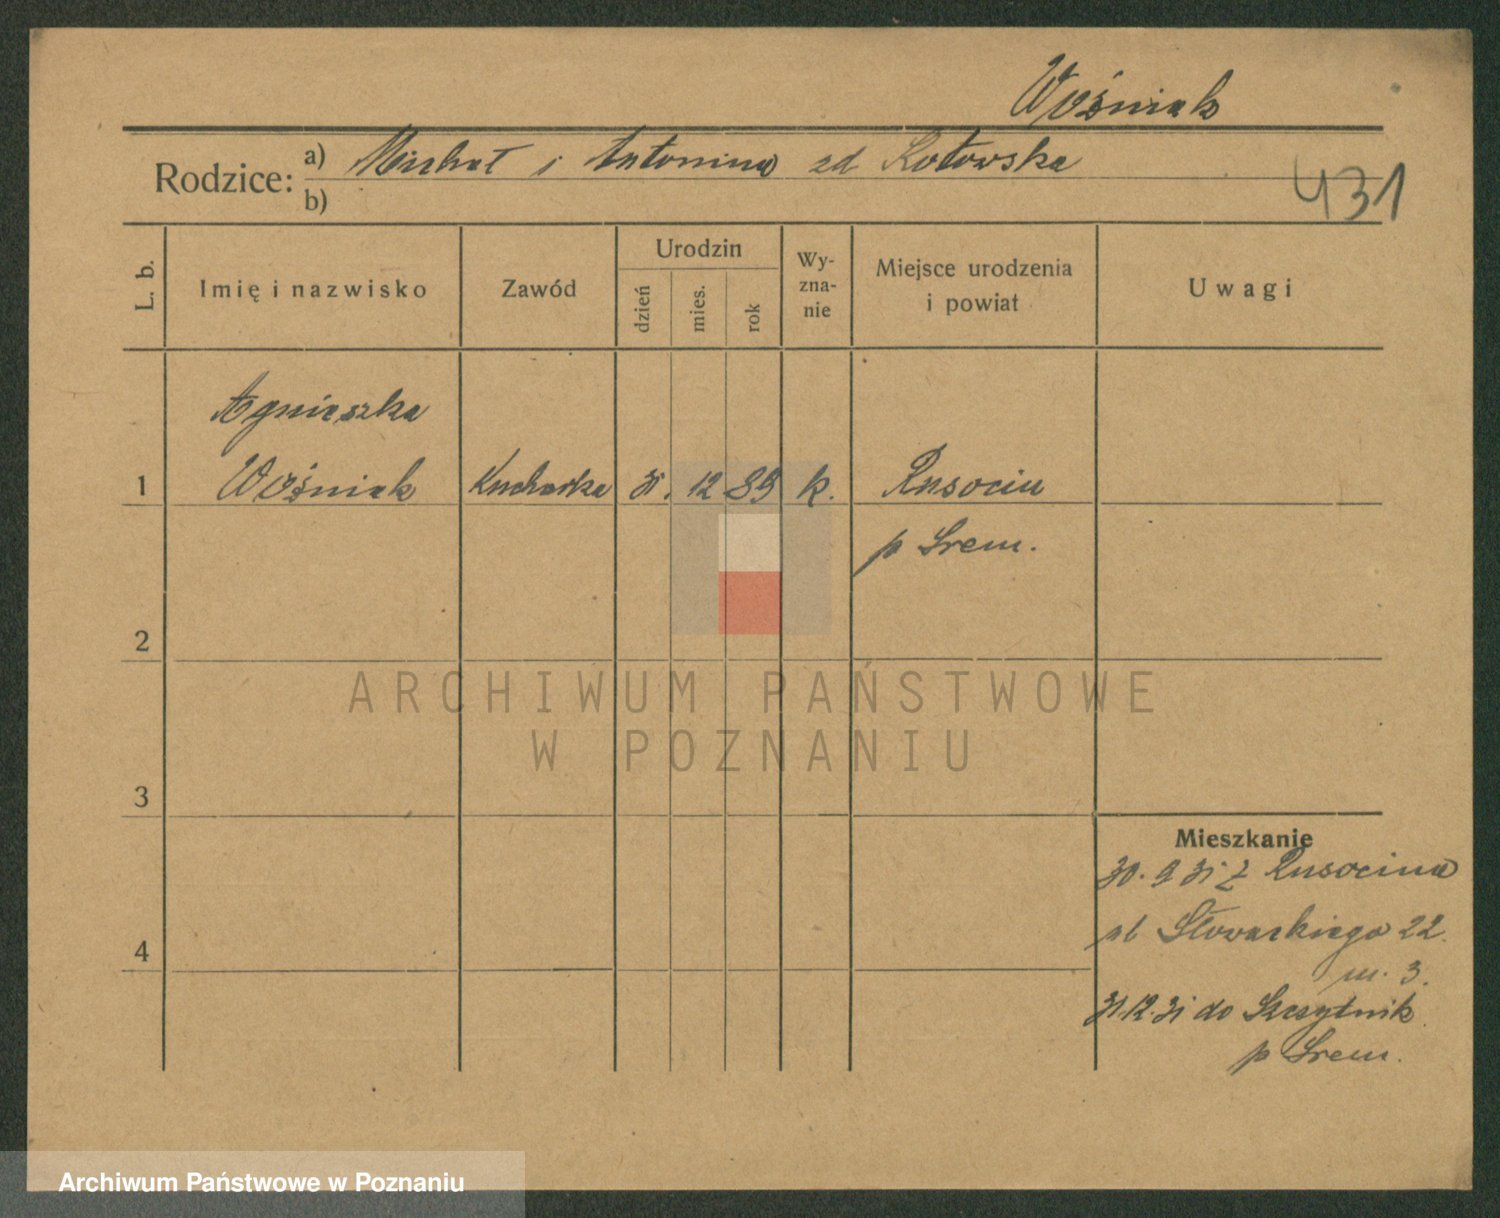 Woźniak
Rodzice: a) Michał i Antonina zd Kotowska
b)
431
L. b.
Imię i nazwisko
Zawód
Urodzin
dzień
mies.
rok
Wy-
zna-
nie
Miejsce urodzenia
i powiat
Uwagi
Agnieszka
1 Woźniak Kucharka 31. 12 89 k. Rusocin
p Śrem.
2
ARCHIWUM PAŃSTWOWE
W POZNANIU
3
Mieszkanie
30. 9 31 z Rusocina
4 ul Słowackiego 22.
m. 3.
31.12.31 do Szczytnik
p Śrem.
Archiwum Państwowe w Poznaniu